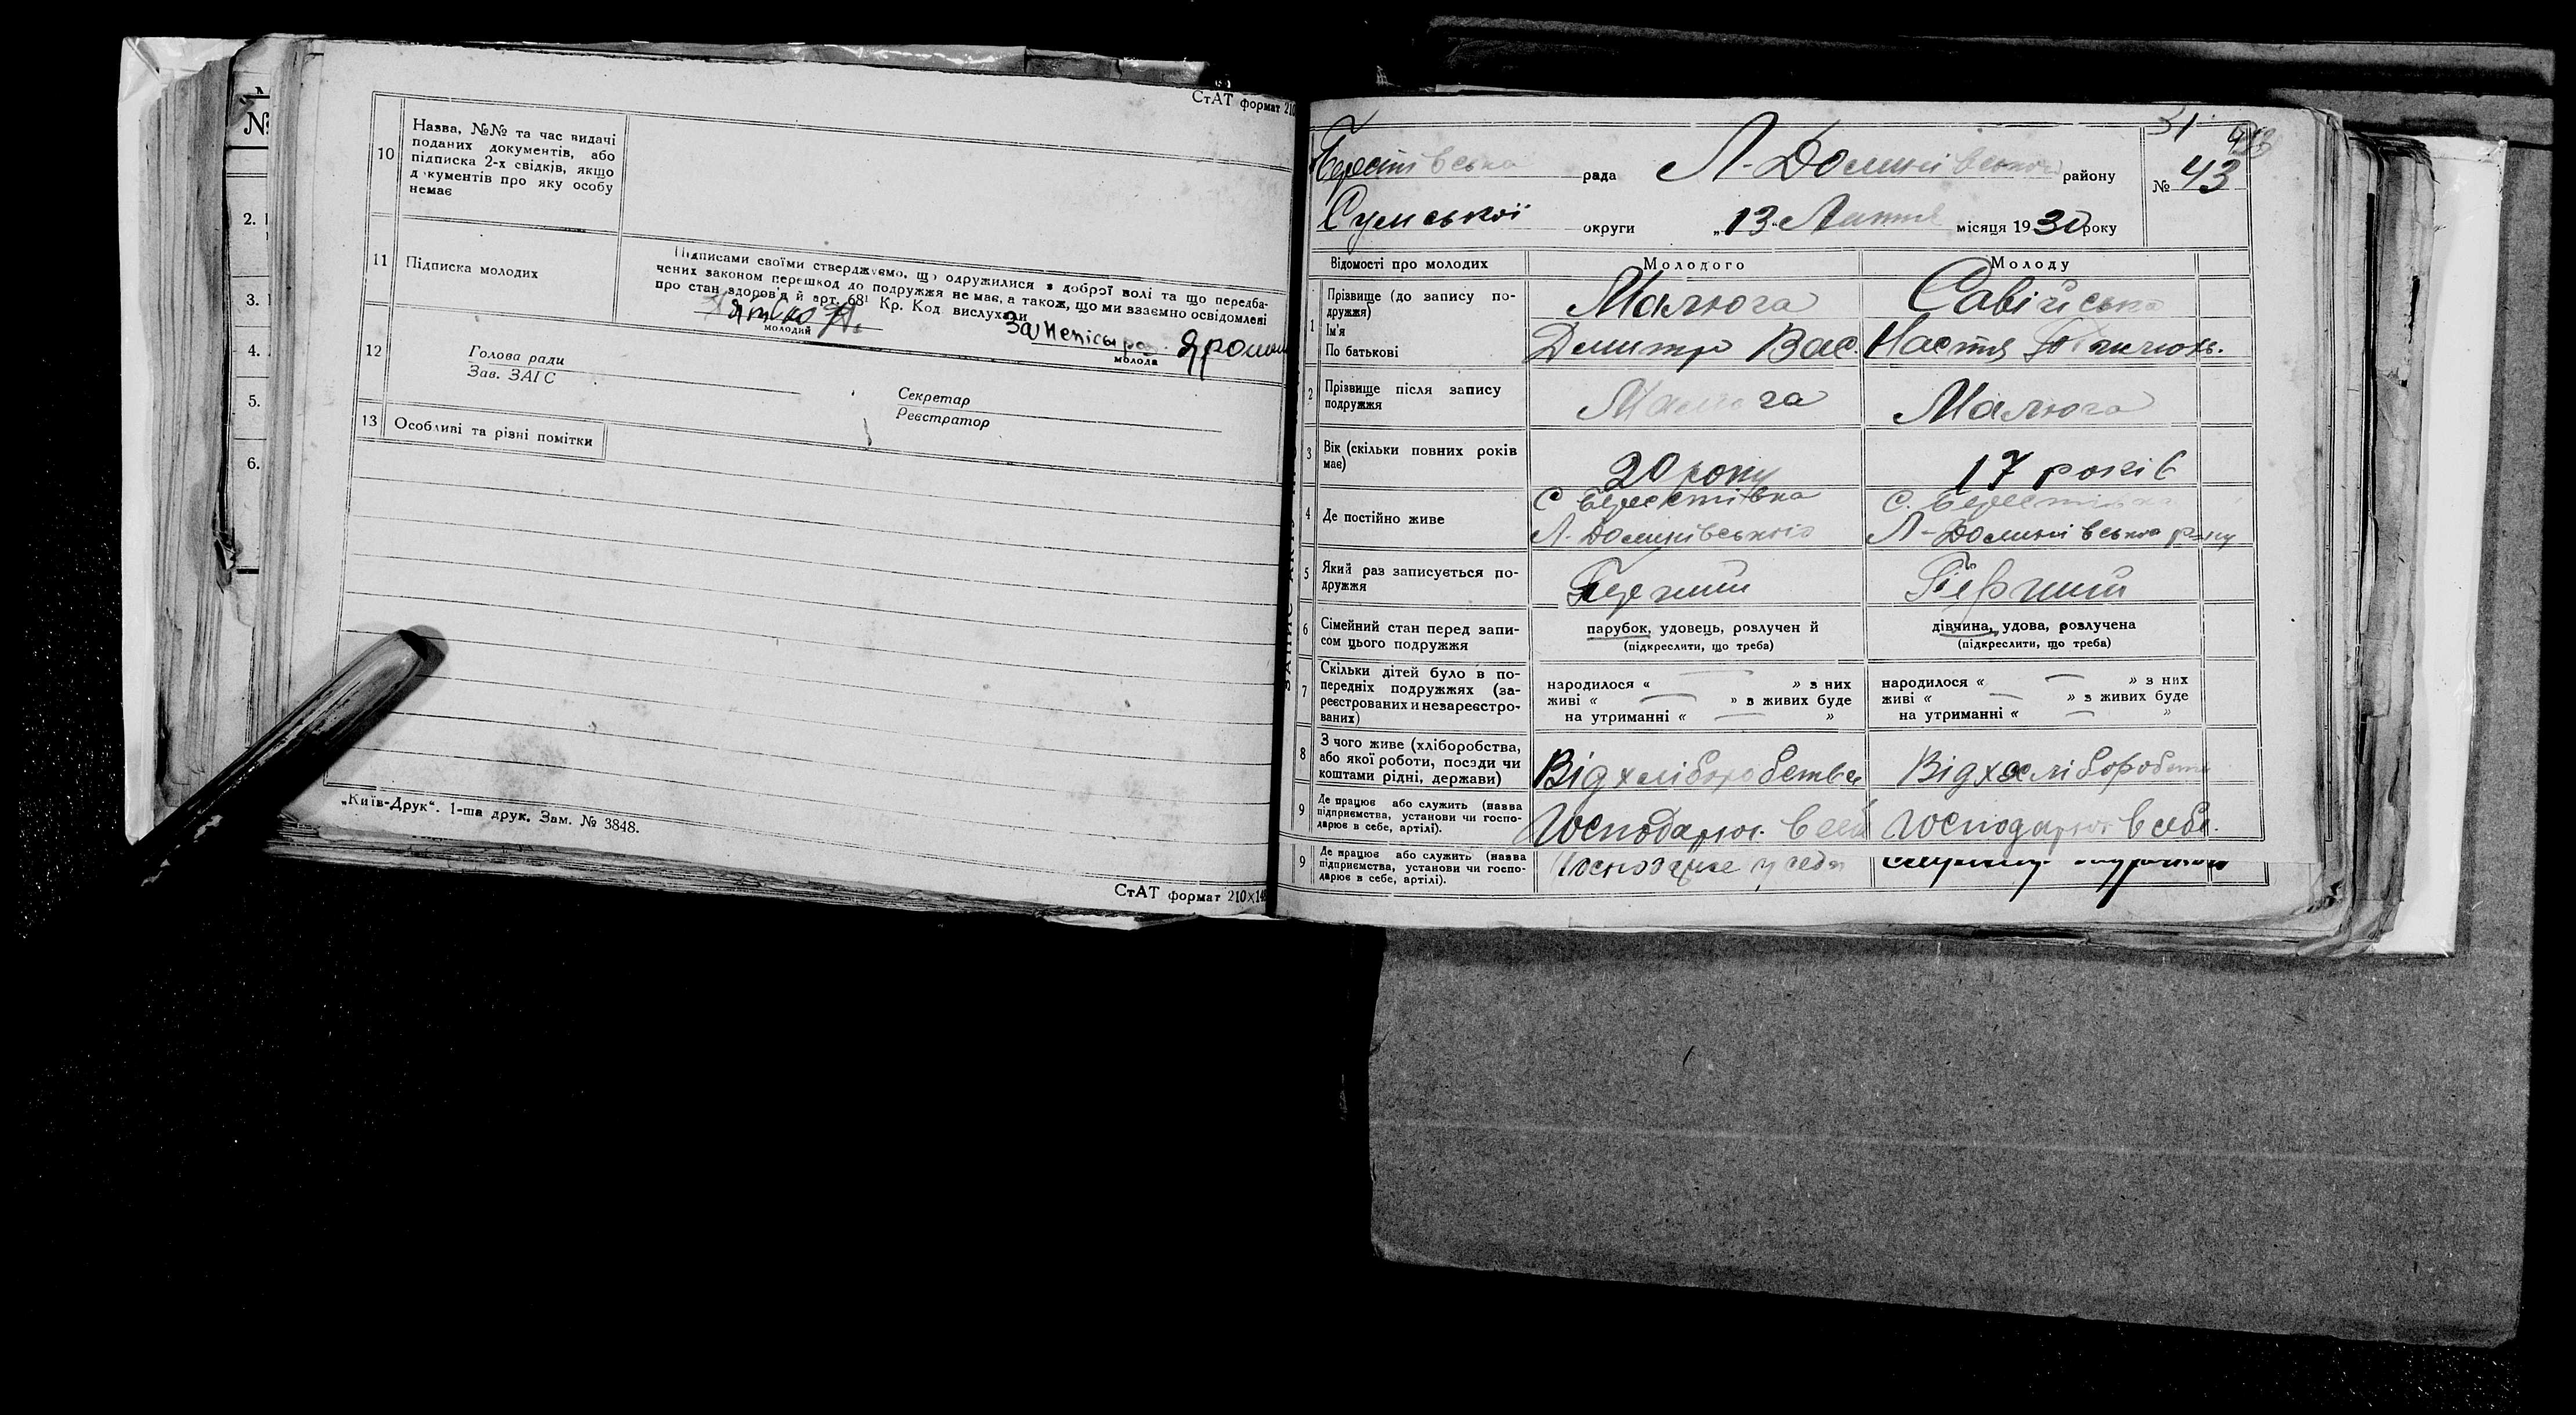 СтАТ формат 210
10 Назва, №№ та час видачі
поданих документів, або
підписка 2-х свідків, якщо
документів про яку особу
немає
11 Підписка молодих
Підписами своїми стверджуємо, що одружилися з доброї волі та що передба-
чених законом перешкод до подружжя немає, а також, що ми взаємно освідомлені
про стан здоров'я й арт. 68¹ Кр. Код вислухали
молодий
молода
12 Голова ради
Зав. ЗАГС
Секретар
Реєстратор
13 Особливі та різні помітки
„Київ-Друк“. 1-ша друк. Зам. № 3848.
СтАТ формат 210×14
№
2.
3.
4.
5.
6.
31
Берестівська рада Л-Долинівського району № 43
Сумської округи „13 Лютня місяця 1930 року
Відомості про молодих Молодого Молоду
1 Прізвище (до запису по-
дружжя) Малюга Савійська
Ім'я
По батькові Дмитро Вас. Настя
2 Прізвище після запису
подружжя Малюга Малюга
3 Вік (скільки повних років
має) 20 року 17 років
4 Де постійно живе С Берестівка С. Берестівка
Л. Долинівського Л-Долинівсько р-ну
5 Який раз записується по-
дружжя Перший Перший
6 Сімейний стан перед запи-
сом цього подружжя
парубок, удовець, розлучен й
(підкреслити, що треба)
дівчина, удова, розлучена
(підкреслити, що треба)
7 Скільки дітей було в по-
передніх подружжях (за-
реєстрованих и незареєстро-
ваних)
народилося « » з них
живі « » в живих буде
на утриманні « »
народилося « » з них
живі « » в живих буде
на утриманні « »
8 З чого живе (хліборобства,
або якої роботи, посади чи
коштами рідні, держави) Від хліборобства Від хліборобств
9 Де працює або служить (назва
підприємства, установи чи госпо-
дарює в себе, артілі). Господарює в себе Господарює в себе.
9 Де працює або служить (назва
підприємства, установи чи госпо-
дарює в себе, артілі). Господарює у себе